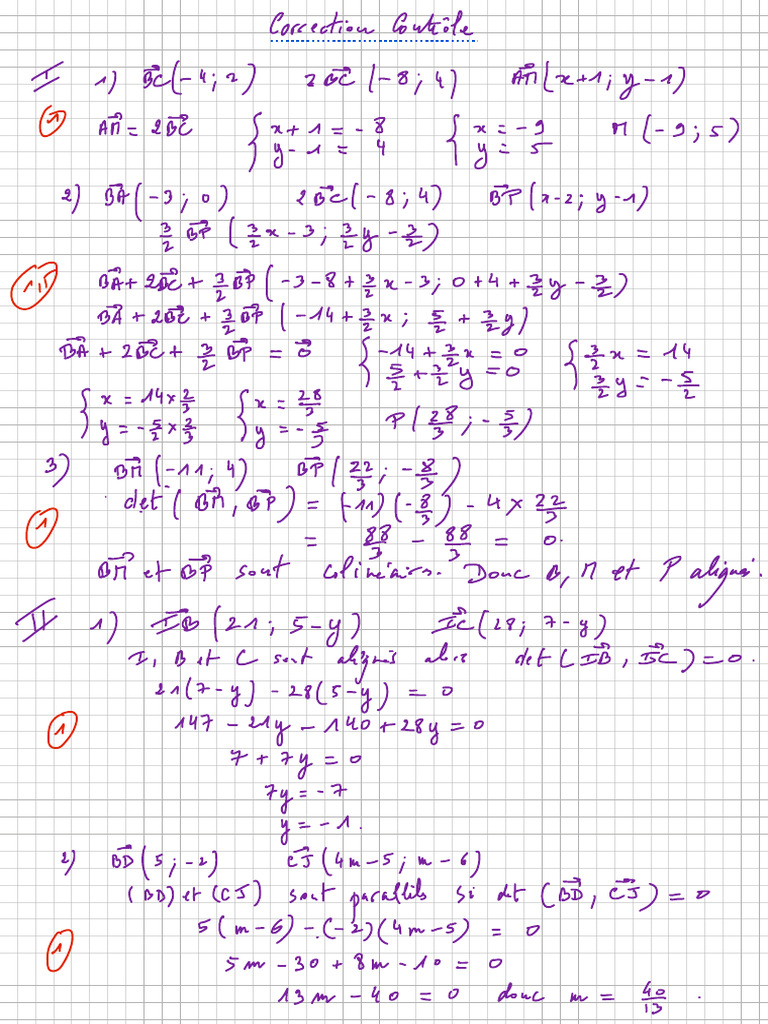 Correction Contrôle
I 1) BC⃗(-4 ; 2) 2BC⃗(-8 ; 4) AM⃗(x+1 ; y-1)
① AM⃗ = 2BC⃗ { x+1 = -8 { x = -9 M(-9 ; 5)
y-1 = 4 y = 5
2) BA⃗(-3 ; 0) 2BC⃗(-8 ; 4) BP⃗(x-2 ; y-1)
3/2 BP⃗(3/2x - 3 ; 3/2y - 3/2)
1,5 BA⃗ + 2BC⃗ + 3/2BP⃗(-3-8+3/2x-3 ; 0+4+3/2y-3/2)
BA⃗ + 2BC⃗ + 3/2BP⃗(-14+3/2x ; 5/2+3/2y)
BA⃗ + 2BC⃗ + 3/2BP⃗ = 0⃗ { -14+3/2x = 0 { 3/2x = 14
5/2+3/2y = 0 3/2y = -5/2
{ x = 14×2/3 { x = 28/3 P(28/3 ; -5/3)
y = -5/2×2/3 y = -5/3
3) BM⃗(-11 ; 4) BP⃗(22/3 ; -8/3)
det(BM⃗, BP⃗) = (-11)(-8/3) - 4×22/3
① = 88/3 - 88/3 = 0.
BM⃗ et BP⃗ sont colinéaires. Donc B, M et P alignés.
II 1) IB⃗(21 ; 5-y) IC⃗(28 ; 7-y)
I, B et C sont alignés alors det(IB⃗, IC⃗) = 0.
21(7-y) - 28(5-y) = 0
① 147 - 21y - 140 + 28y = 0
7 + 7y = 0
7y = -7
y = -1.
2) BD⃗(5 ; -2) CJ⃗(4m-5 ; m-6)
(BD) et (CJ) sont parallèles si det(BD⃗, CJ⃗) = 0
5(m-6) - (-2)(4m-5) = 0
① 5m - 30 + 8m - 10 = 0
13m - 40 = 0 donc m = 40/13.